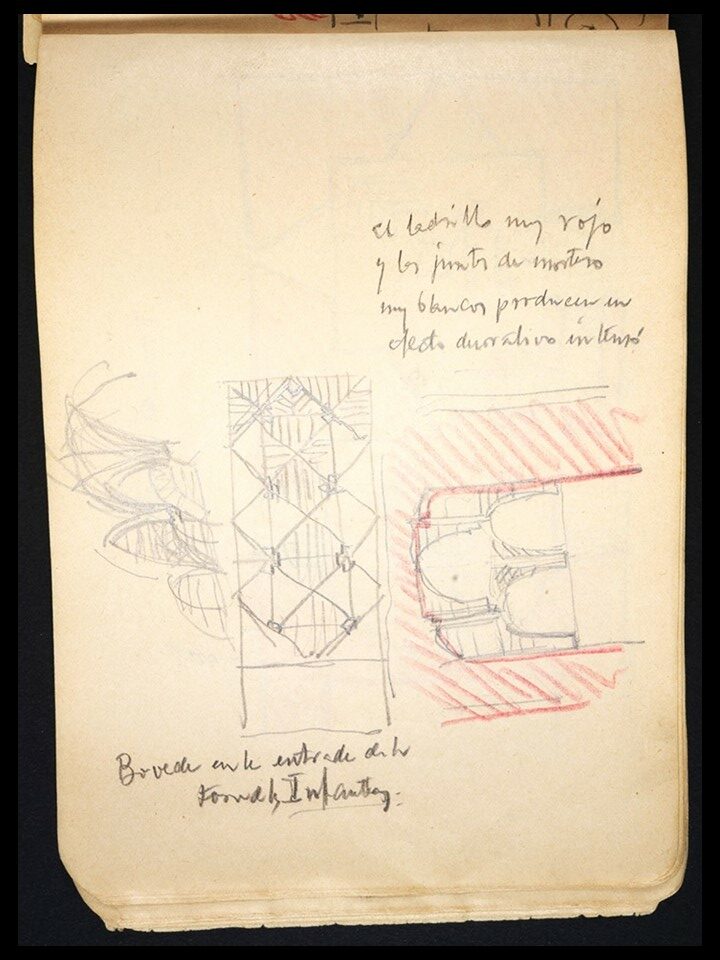 el ladrillo muy rojo
y las juntas de mortero
muy blancas producen un
efecto decorativo intenso
Boveda en la entrada de la
Torre de las Infantas.